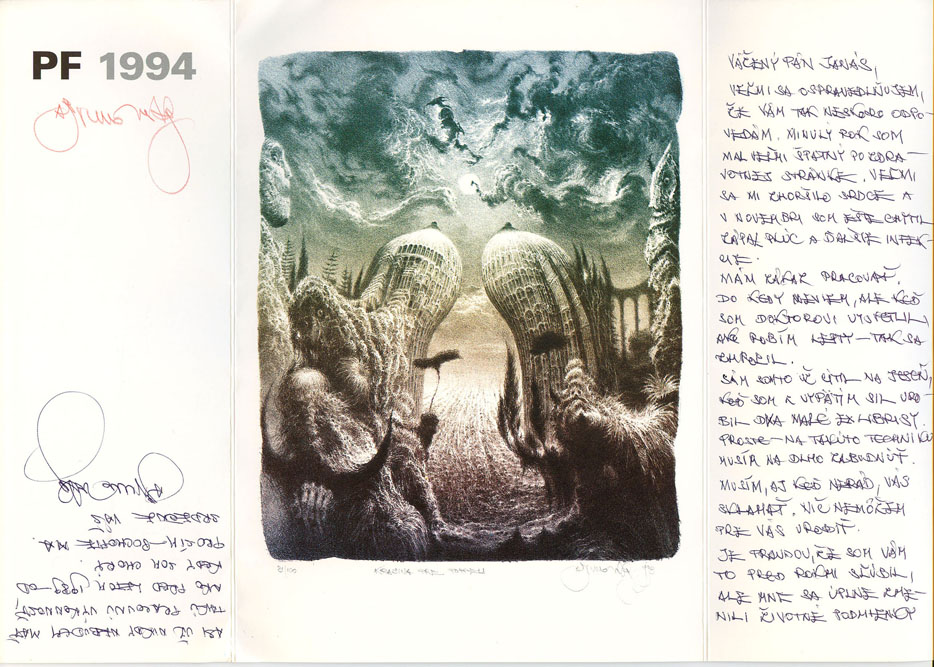 PF 1994
VÁŽENÝ PÁN JANÁS,
VEĽMI SA OSPRAVEDLŇUJEM,
ŽE VÁM TAK NESKORO ODPO-
VEDÁM. MINULÝ ROK SOM
MAL VEĽMI ŠPATNÝ PO ZDRA-
VOTNEJ STRÁNKE. VEĽMI
SA MI ZHORŠILO SRDCE A
V NOVEMBRI SOM EŠTE CHYTIL
ZÁPAL PĽÚC A ĎALŠIE INFEK-
CIE.
MÁM ZÁKAZ PRACOVAŤ.
DO KEDY NEVIEM, ALE KEĎ
SOM DOKTOROVI VYSVETLIL,
AKO ROBÍM LEPTY – TAK SA
ZHROZIL.
SÁM SOM TO UŽ CÍTIL NA JESEŇ,
KEĎ SOM Z VYPÄTÍM SIL URO-
BIL DVA MALÉ EX LIBRISY.
PROSTE – NA TAKÚTO TECHNIKU
MUSÍM NA DLHO ZABUDNÚŤ.
MUSÍM, AJ KEĎ NERÁD, VÁS
SKLAMAŤ. NIČ NEMÔŽEM
PRE VÁS UROBIŤ.
JE PRAVDOU, ŽE SOM VÁM
TO PRED ROKMI SĽÚBIL,
ALE MNE SA ÚPLNE ZME-
NILI ŽIVOTNÉ PODMIENKY
ASI UŽ NIKDY NEBUDEM MAŤ
TAKÚ PRACOVNÚ VÝKONNOSŤ,
AKO PRED LETOM 1989 – OD
KEDY SOM CHORÝ.
PROSÍM – POCHOPTE MA.
SRDEČNE VÁŠ